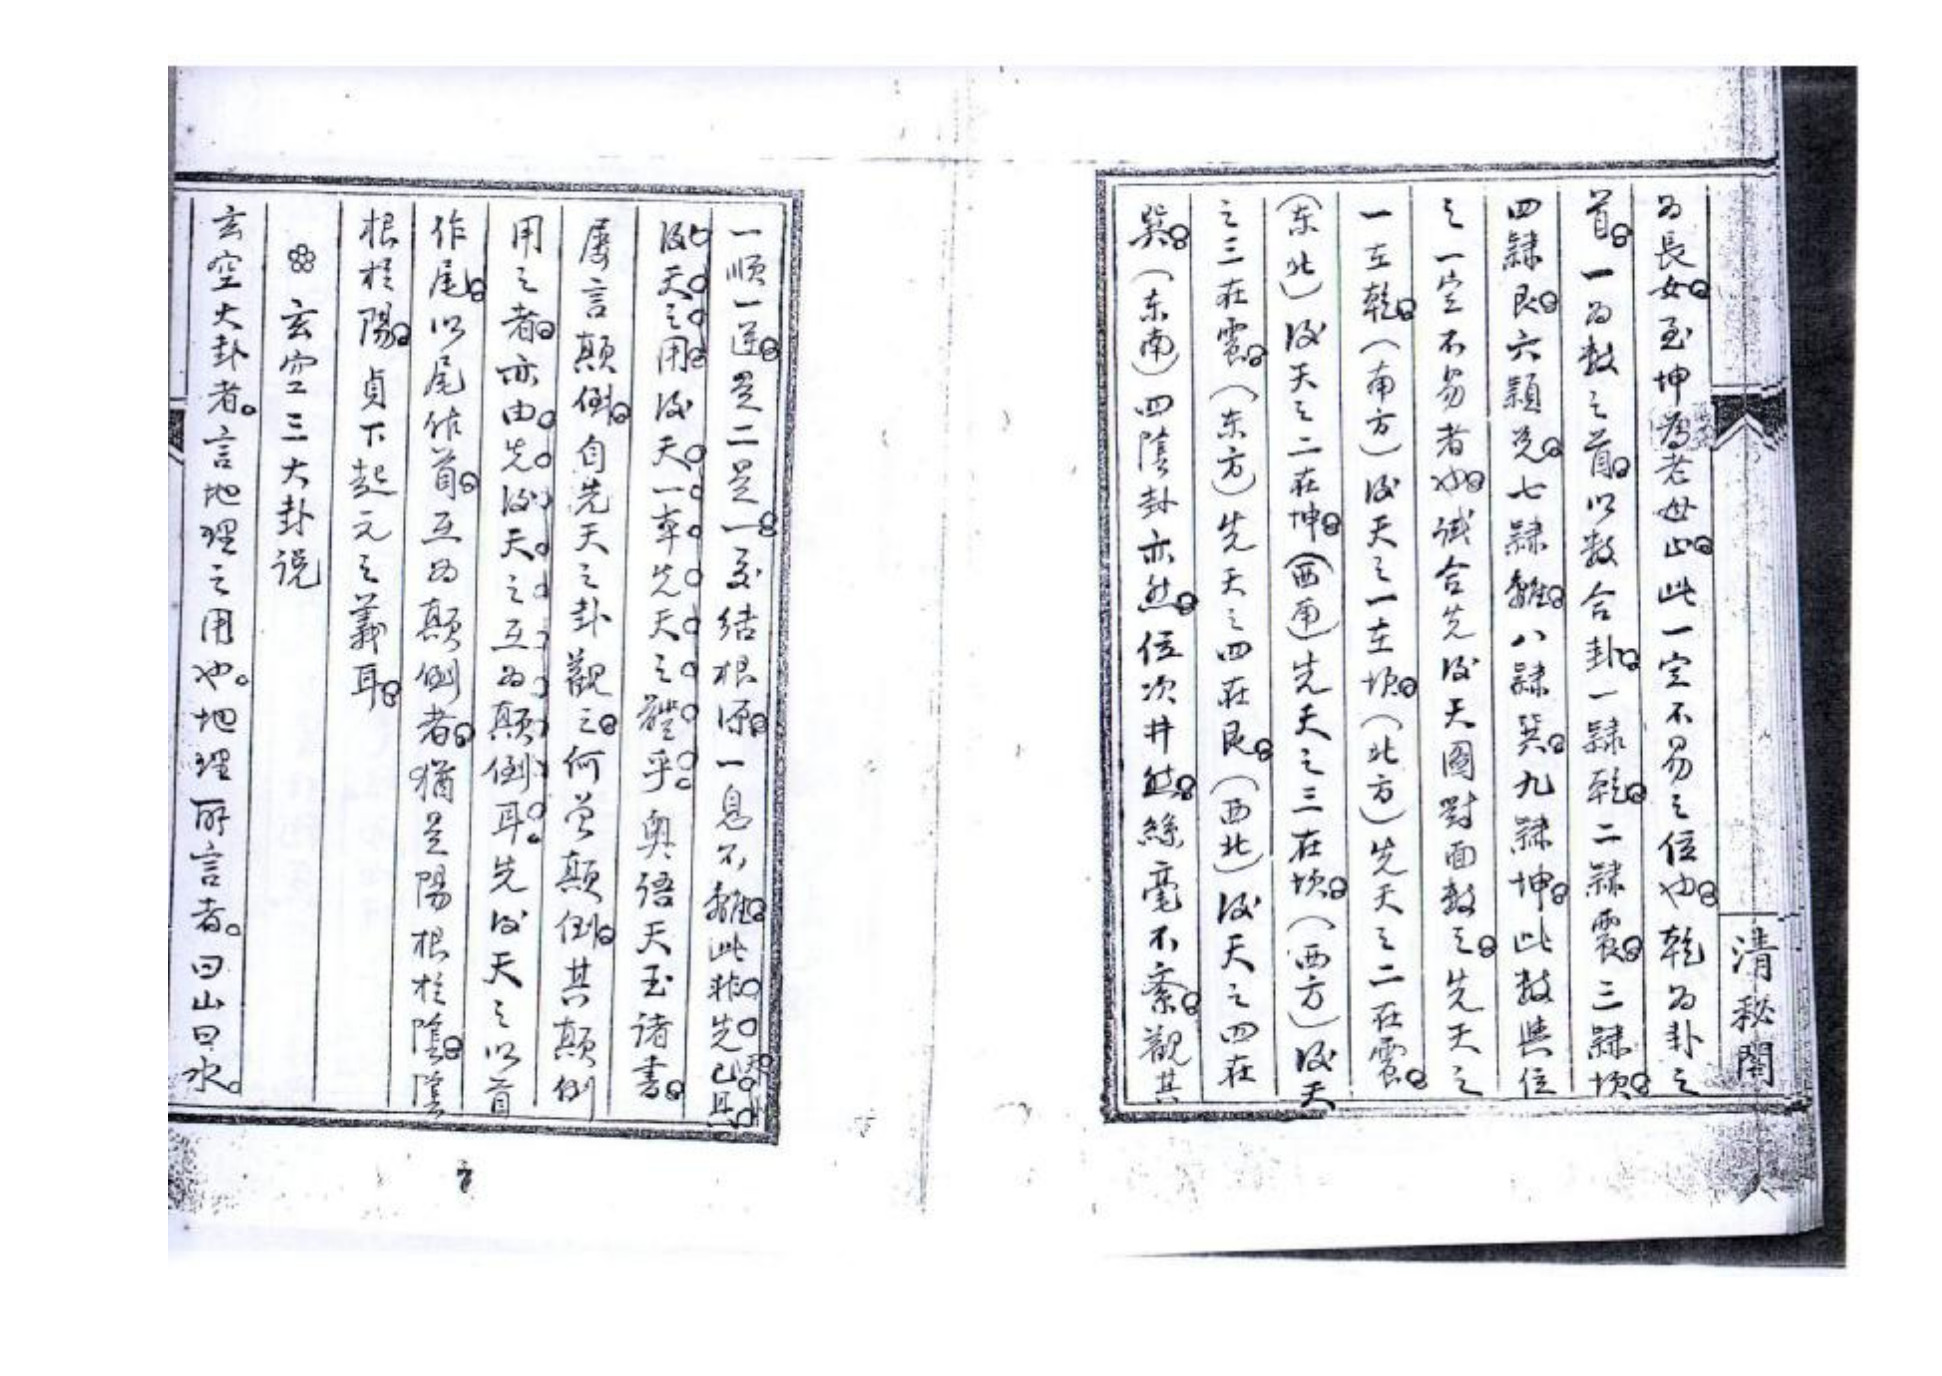 清秘閣
为長女至坤為老母止此一定不易之位也乾为卦之
首一为数之首以数合卦一隸乾二隸震三隸坎
四隸艮六隸兑七隸離八隸巽九隸坤此数與位
之一定不易者也试合先後天圖對面数之先天之
一左乾（南方）後天之一在坎（北方）先天之二在震
（东北）後天之二在坤（西南）先天之三在坎（西方）後天
之三在震（东方）先天之四在艮（西北）後天之四在
巽（东南）四陰卦亦然位次井然絲毫不紊觀其
一順一逆是二是一交结根源一息不離此非先天已具
後天之用後天一率先天之體乎奥语天玉诸書
屡言顛倒自先天之卦觀之何曾顛倒其顛倒
用之者亦由先後天之互为顛倒耳。先後天之以首
作尾以尾作首互为顛倒者猶是陽根於陰陰
根於陽貞下起元之義耳
玄空三大卦说
玄空大卦者。言地理之用也。地理所言者。曰山曰水。